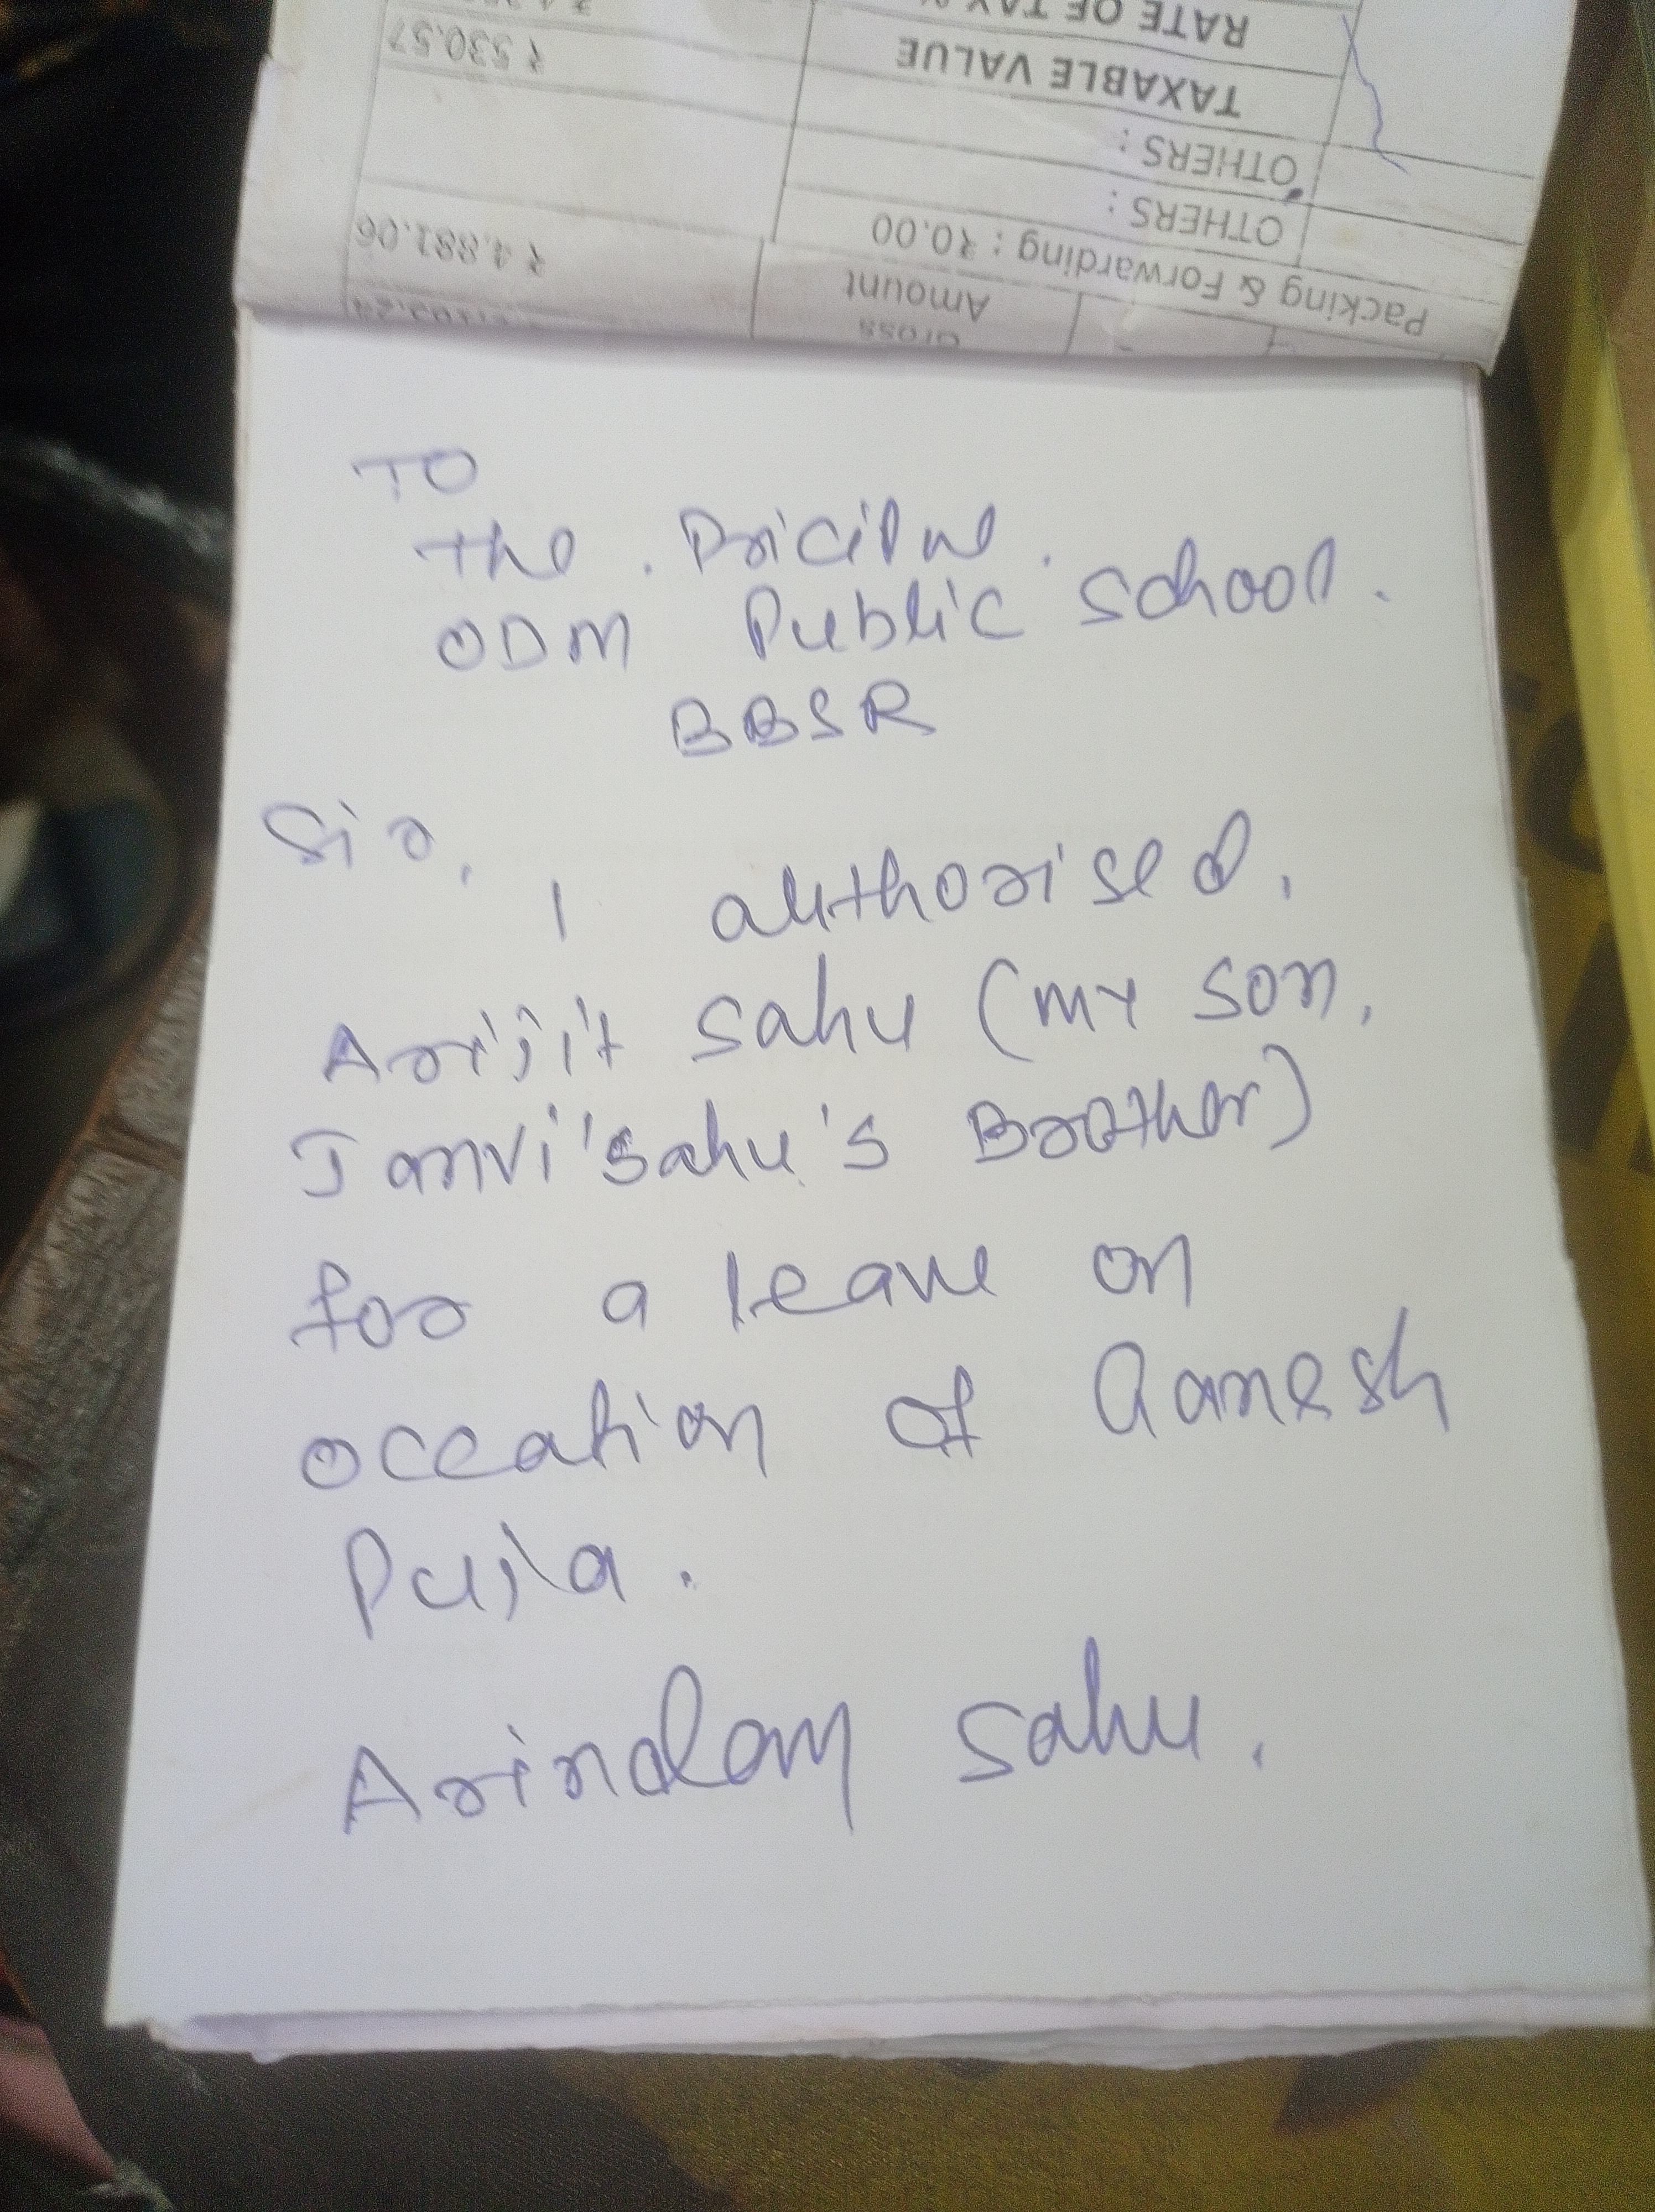 RATE OF TAX %
TAXABLE VALUE ₹ 530.57
OTHERS :
OTHERS :
Packing & Forwarding : ₹0.00
Gross
Amount ₹ 4,881.06
TO
the . Pricipal .
ODM Public school .
BBSR
Sir,
I authorised,
Arijit Sahu (my son,
Janvi'sahu's Brother)
for a leave on
occation of Ganesh
Puja .
Arindam Sahu .